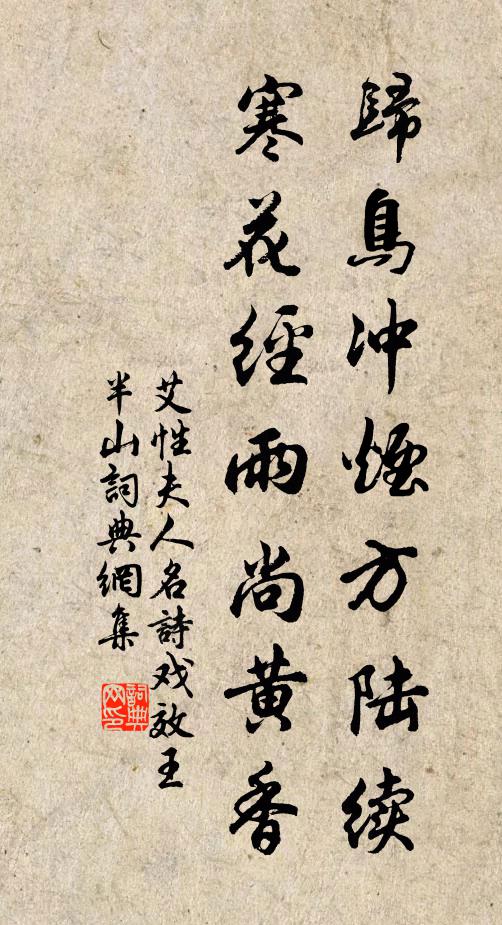 歸鳥冲煙方陆续
寒花經雨尚黄香
艾性夫人名詩戏效王
半山詞典網集
詞典网印